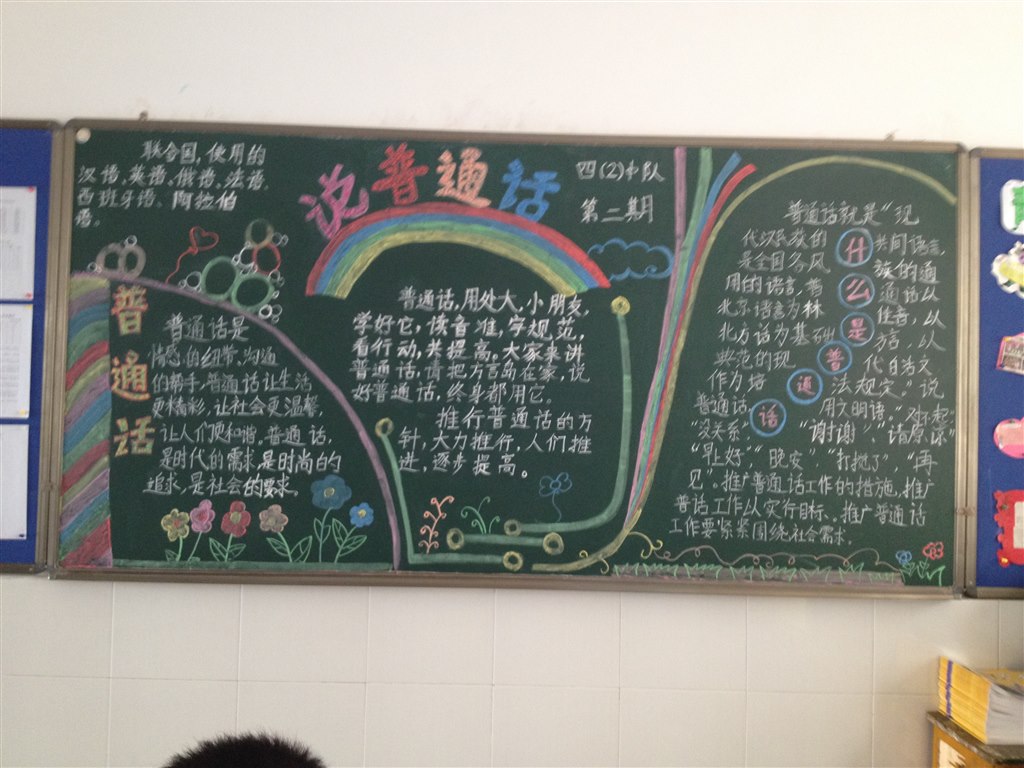 联合国,使用的
汉语、英语、俄语、法语、
西班牙语、阿拉伯
语。
说普通话
四(2)中队
第二期
普通话
普通话是
情感的纽带,沟通
的桥手,普通话让生活
更精彩,让社会更温馨,
让人们更和谐。普通话,
是时代的需求,是时尚的
追求,是社会的要求。
普通话,用处大,小朋友,
学好它,读音准,字规范,
看行动,共提高。大家来讲
普通话,请把方言留在家,说
好普通话,终身都用它。
推行普通话的方
针,大力推行,人们推
进,逐步提高。
什么是普通话
普通话就是“现
代汉民族的 共同语言,
是全国各民 族的通
用的语言,普 通话以
北京语言为标 准音,以
北方话为基础 方言,以
典范的现 代白话文
作为 法规定。”说
普通话 用文明语。
“没关系,” “谢谢”,“请原谅”
“早上好”,“晚安”,“打扰了”,“再
见”。推广普通话工作的措施,推广
普话工作从实行目标、推广普通话
工作要紧紧围绕社会需求。